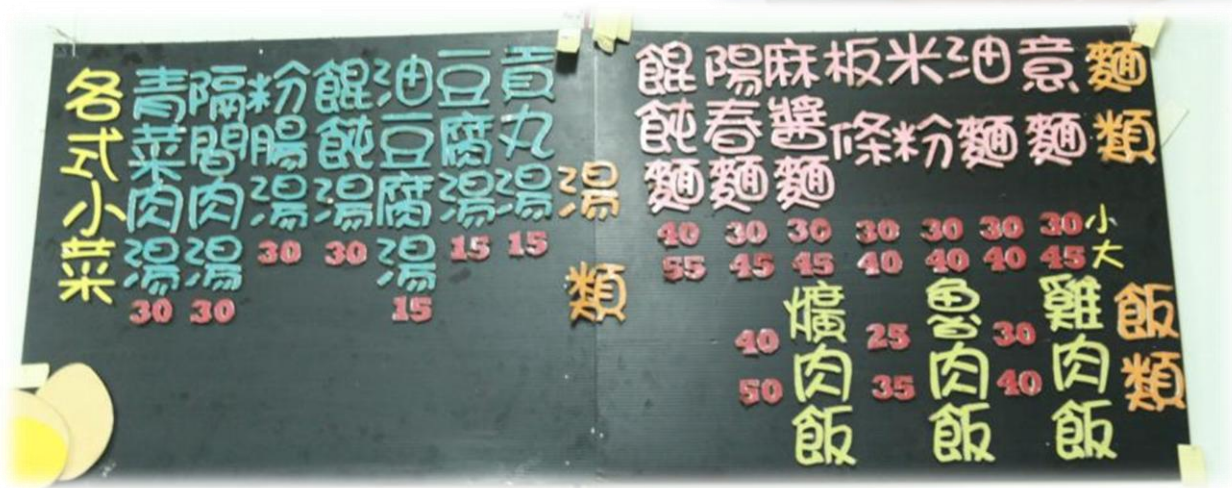 麵類
小
大
意麵
30
45
油麵
30
40
米粉
30
40
板條
30
40
麻醬麵
30
45
陽春麵
30
45
餛飩麵
40
55
飯類
雞肉飯
30
40
魯肉飯
25
35
爌肉飯
40
50
湯類
貢丸湯
15
豆腐湯
15
油豆腐湯
15
餛飩湯
30
粉腸湯
30
隔間肉湯
30
青菜肉湯
30
各式小菜